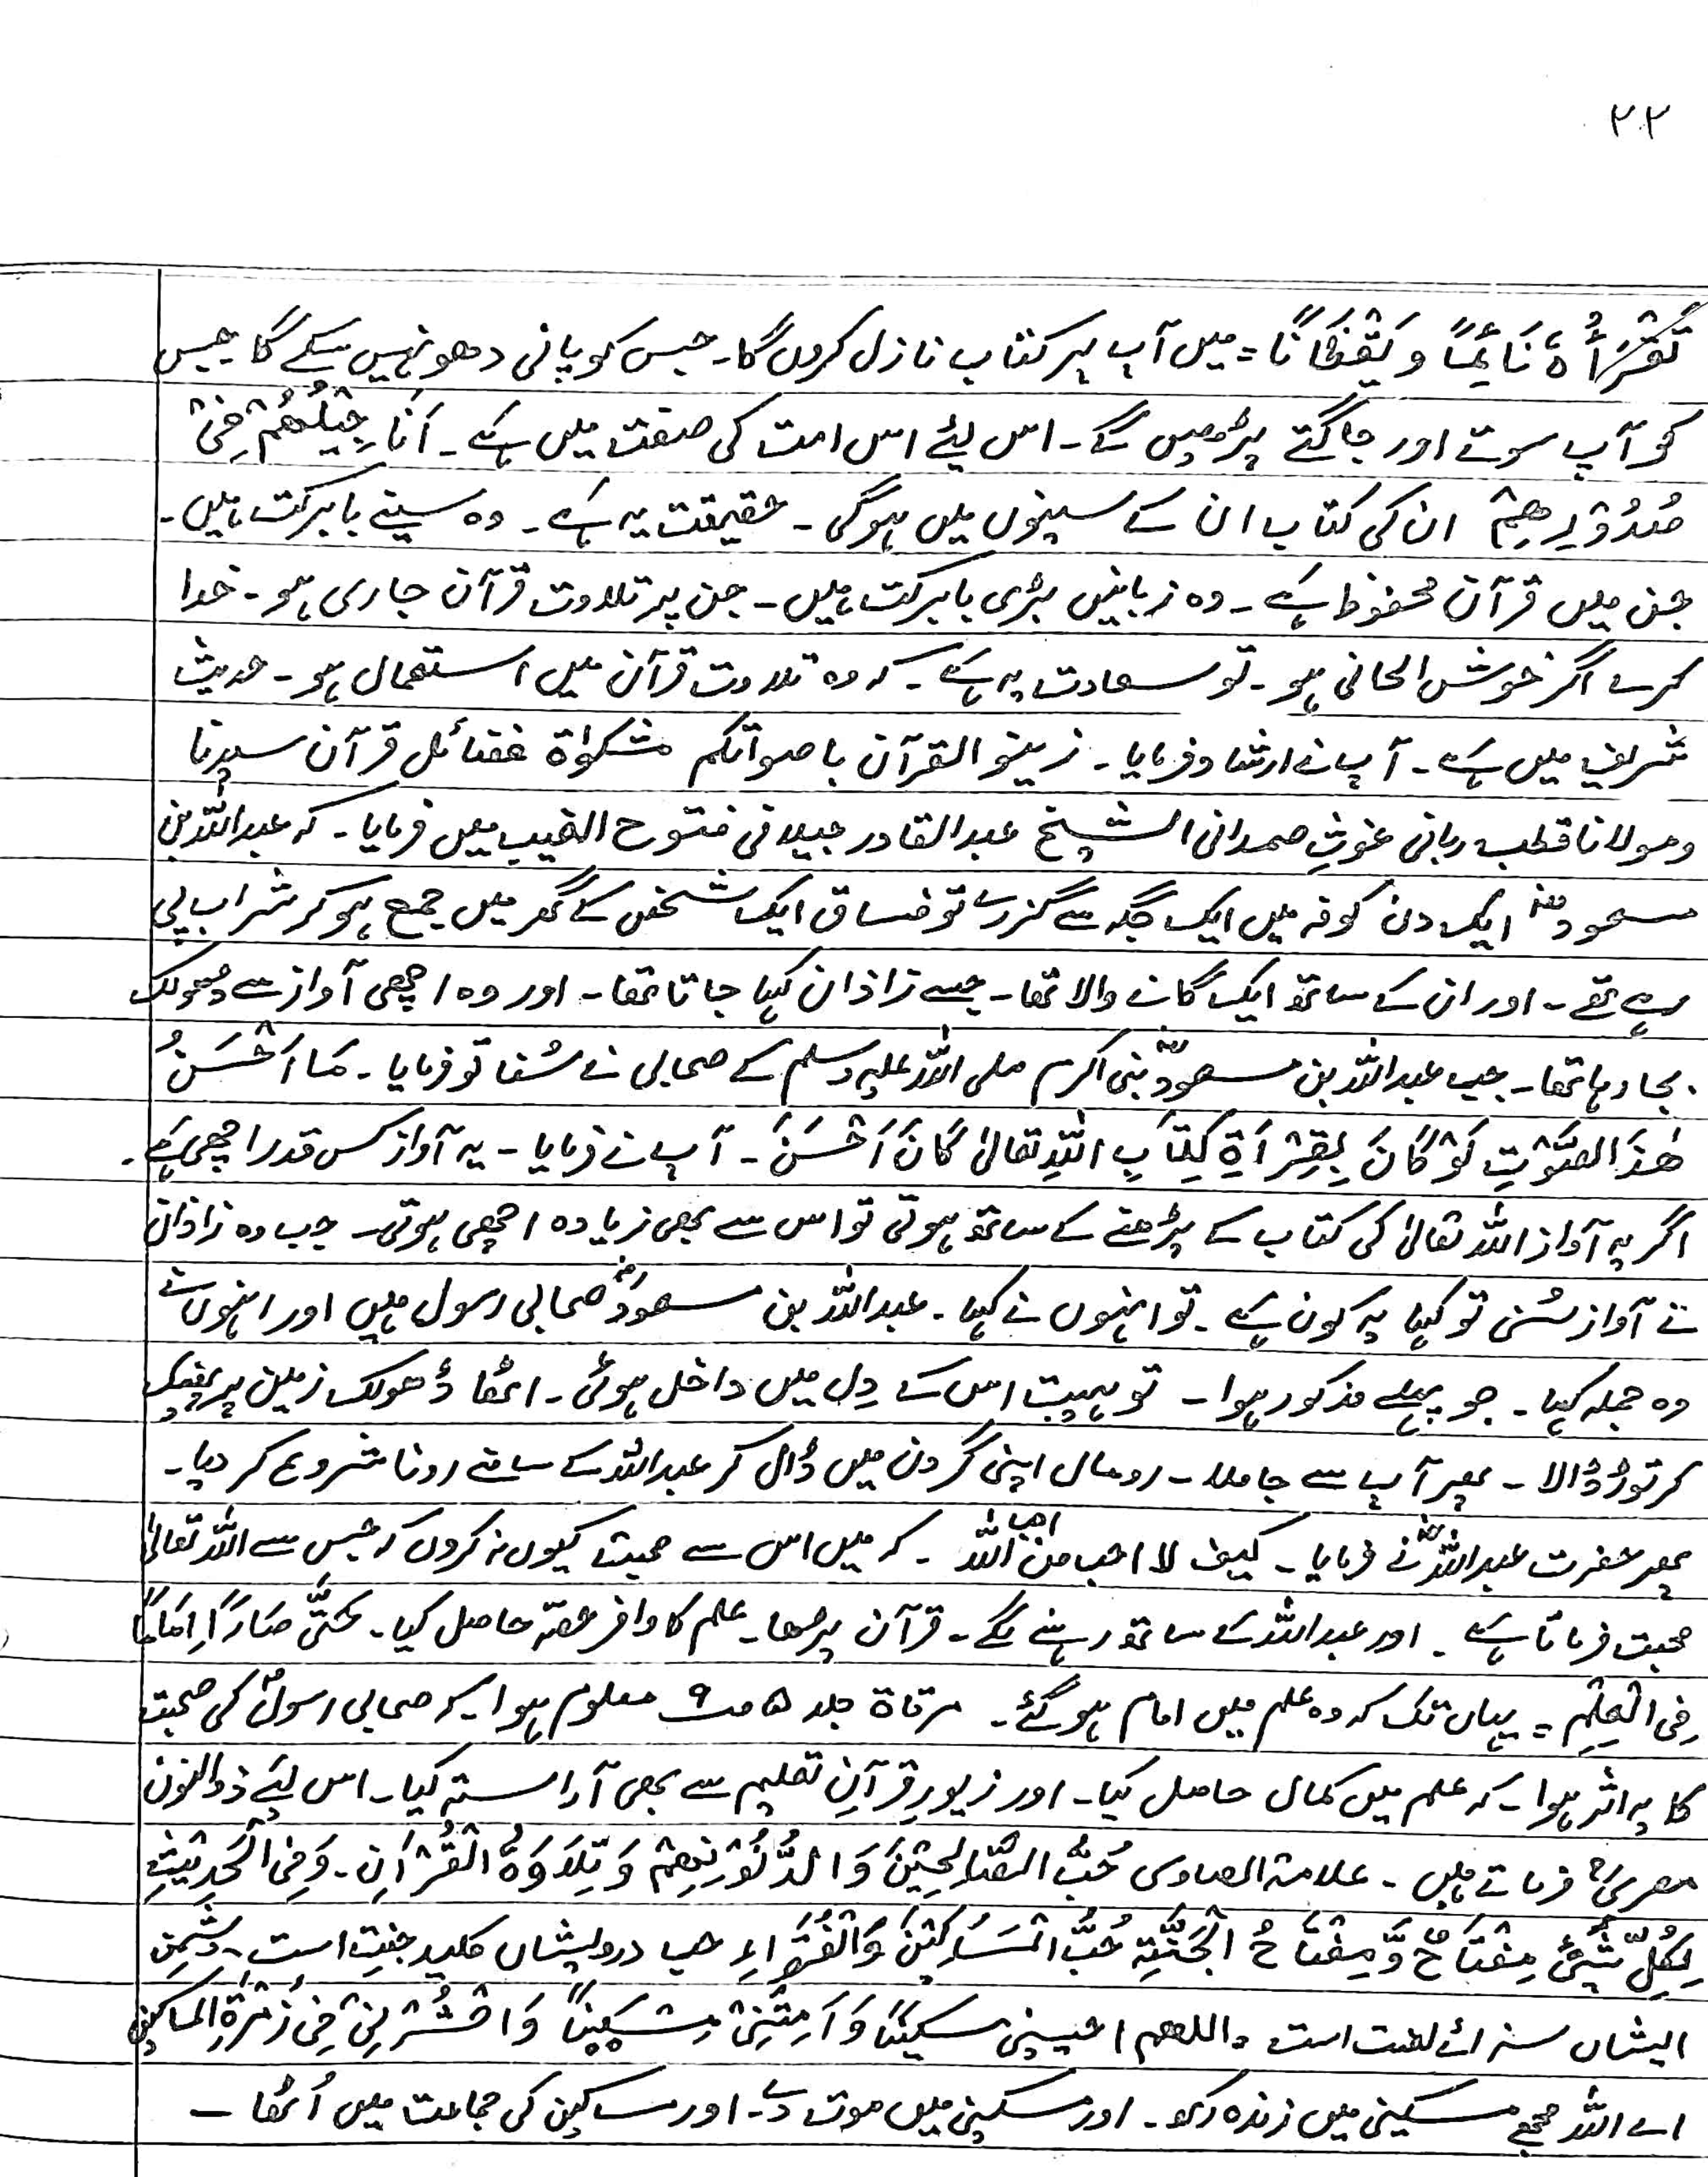 ٢٢
تَقْرَأُہٗ نَائِمًا وَیَقْظَانًا = میں آپ پر کتاب نازل کروں گا۔ جس کو پانی دھو نہیں سکے گا۔ جس
کو آپ سوتے اور جاگتے پڑھیں گے۔ اس لئے اس امت کی صفت میں ہے۔ اَنَاجِیْلُھُمْ فِیْ
صُدُوْرِھِمْ ان کی کتاب ان کے سینوں میں ہوگی۔ حقیقت یہ ہے۔ وہ سینے بابرکت ہیں۔
جن میں قرآن محفوظ ہے۔ وہ زبانیں بڑی بابرکت ہیں۔ جن پر تلاوت قرآن جاری ہو۔ خدا
کرے اگر خوش الحانی ہو۔ تو سعادت یہ ہے۔ کہ وہ تلاوت قرآن میں استعمال ہو۔ حدیث
شریف میں ہے۔ آپ نے ارشاد فرمایا۔ زینو القرآن باصواتکم مشکوٰۃ فضائل قرآن سیدنا
ومولانا قطب ربانی غوثِ صمدانی الشیخ عبدالقادر جیلانی فتوح الغیب میں فرمایا۔ کہ عبداللہ بن
مسعودؓ ایک دن کوفہ میں ایک جگہ سے گزرے تو فساق ایک شخص کے گھر میں جمع ہو کر شراب پی
رہے تھے۔ اور ان کے ساتھ ایک گانے والا تھا۔ جسے زاذان کہا جاتا تھا۔ اور وہ اچھی آواز سے ڈھولک
بجا رہا تھا۔ جب عبداللہ بن مسعودؓ نبی اکرم صلی اللہ علیہ وسلم کے صحابی نے سُنا تو فرمایا۔ مَا اَحْسَنُ
ھٰذَا الصَّوْتِ لَوْ کَانَ بِقِرْاَۃِ کِتَابِ اللّٰہِ تعالیٰ کَانَ اَحْسَنَ۔ آپ نے فرمایا۔ یہ آواز کس قدر اچھی ہے۔
اگر یہ آواز اللہ تعالیٰ کی کتاب کے پڑھنے کے ساتھ ہوتی تو اس سے بھی زیادہ اچھی ہوتی۔ جب وہ زاذان
نے آواز سُنی تو کہا یہ کون ہے۔ تو انہوں نے کہا۔ عبداللہ بن مسعودؓ صحابی رسول ہیں اور انہوں نے
وہ جملہ کہا۔ جو پہلے مذکور ہوا۔ تو ہیبت اس کے دِل میں داخل ہوئی۔ اٹھا ڈھولک زمین پر پھینک
کر توڑ ڈالا۔ پھر آپ سے جا ملا۔ رومال اپنی گردن میں ڈال کر عبداللہ کے سامنے رونا شروع کر دیا۔
پھر حضرت عبداللہؓ نے فرمایا۔ کیف لا احب من احبہ اللہ۔ کہ میں اس سے محبت کیوں نہ کروں کہ جس سے اللہ تعالیٰ
محبت فرماتا ہے۔ اور عبداللہ کے ساتھ رہنے لگے۔ قرآن پڑھا۔ علم کا وافر حصّہ حاصل کیا۔ حَتّٰی صَارَ اِمَامًا
فِی الْعِلْمِ = یہاں تک کہ وہ علم میں امام ہوگئے۔ مرقاۃ جلد ۵ صـ ۹ معلوم ہوا۔ کہ صحابی رسولؐ کی صحبت
کا یہ اثر ہوا۔ کہ علم میں کمال حاصل کیا۔ اور زیورِ قرآنِ تعلیم سے بھی آراستہ کیا۔ اس لئے ذوالنون
مصریؒ فرماتے ہیں۔ علامۃ الصاوی حُبُّ الصَّالِحِیْنَ وَالدُّنُوِّ مِنْھُمْ وَتِلَاوَۃُ الْقُرْاٰنِ۔ وَفِی الْحَدِیْثِ
لِکُلِّ شَیْئٍ مِفْتَاحٌ وَّمِفْتَاحُ الْجَنَّۃِ حُبُّ الْمَسَاکِیْنَ وَالْفُقَرَاءِ حب درویشاں کلید جنت است۔ دشمن
ایشاں سزائے لعنت است۔ اللھم احیینی مسکینًا وَاَمِتْنِیْ مِسْکِیْنًا وَاحْشُرْنِیْ فِیْ زُمْرَۃِ المساکین
اے اللہ مجھے مسکینی میں زندہ رکھ۔ اور مسکینی میں موت دے۔ اور مساکین کی جماعت میں اُٹھا۔